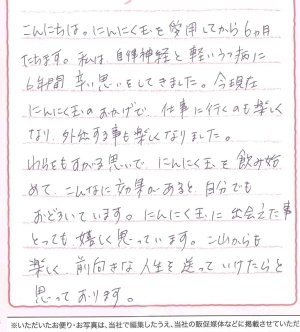 こんにちは。にんにく玉を愛用してから6ヵ月
たちます。私は、自律神経と軽いうつ病に
6年間 辛い思いをしてきました。今現在
にんにく玉のおかげで、仕事に行くのも楽しく
なり、外出する事も楽しくなりました。
わらをもすがる思いで にんにく玉を飲み始
めて、こんなに効果があると、自分でも
おどろいています。にんにく玉に出会えた事
とっても嬉しく思っています。これからも
楽しく 前向きな人生を送っていけたらと
思っております。
※いただいたお便り・お写真は、当社で編集したうえ、当社の販促媒体などに掲載させていただ